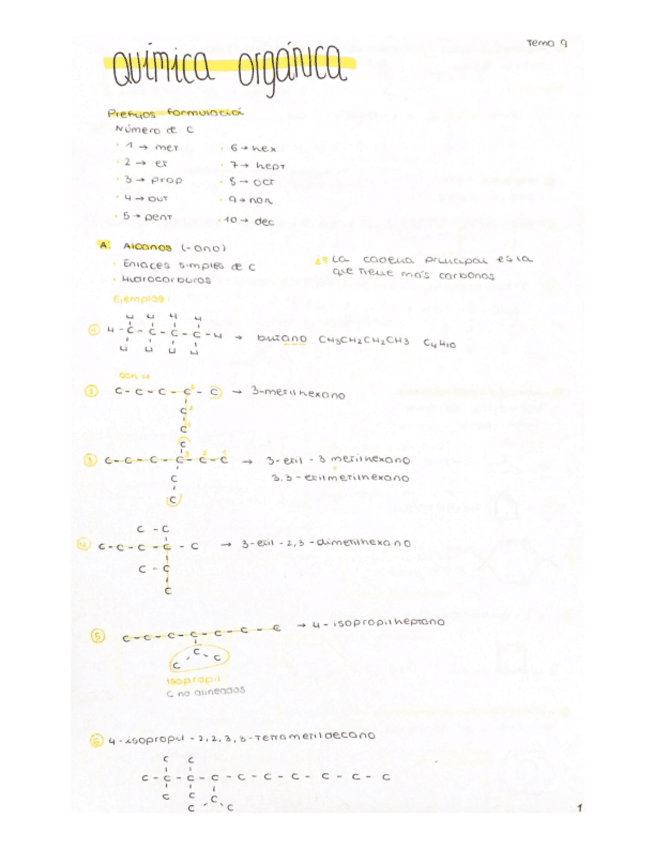 Tema 9
Química orgánica
Prefijos formulació
Número de C
1 → met
2 → et
3 → prop
4 → but
5 → pent
6 → hex
7 → hept
8 → oct
9 → non
10 → dec
A. Alcanos (-ano)
· Enlaces simples de C
· Hidrocarburos
La cadena principal es la
que tiene más carbonos
Ejemplos:
1
H H H H
H - C - C - C - C - H → butano CH3CH2CH2CH3 C4H10
H H H H
son H
2 C - C - C - C - C → 3-metilhexano
C
C
C
3 C - C - C - C - C - C → 3-etil-3 metilhexano
C
C
3,3-etilmetilhexano
C - C
4 C - C - C - C - C → 3-etil-2,3-dimetilhexano
C - C
C
5 C - C - C - C - C - C - C → 4-isopropilheptano
C
C C
isopropil
C no alineados
6 4-isopropil-2,2,3,3-tetrametildecano
C C
C - C - C - C - C - C - C - C - C - C
C C C
C C
1